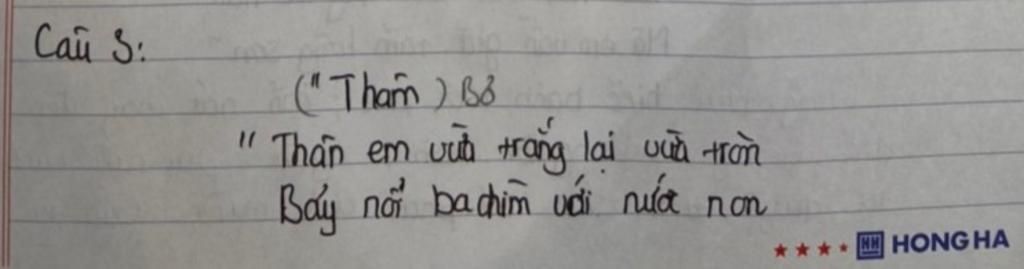 Câu 3:
("Thâm) Bỏ
"Thân em vừa trắng lại vừa tròn
Bảy nổi ba chìm với nước non
HONG HA